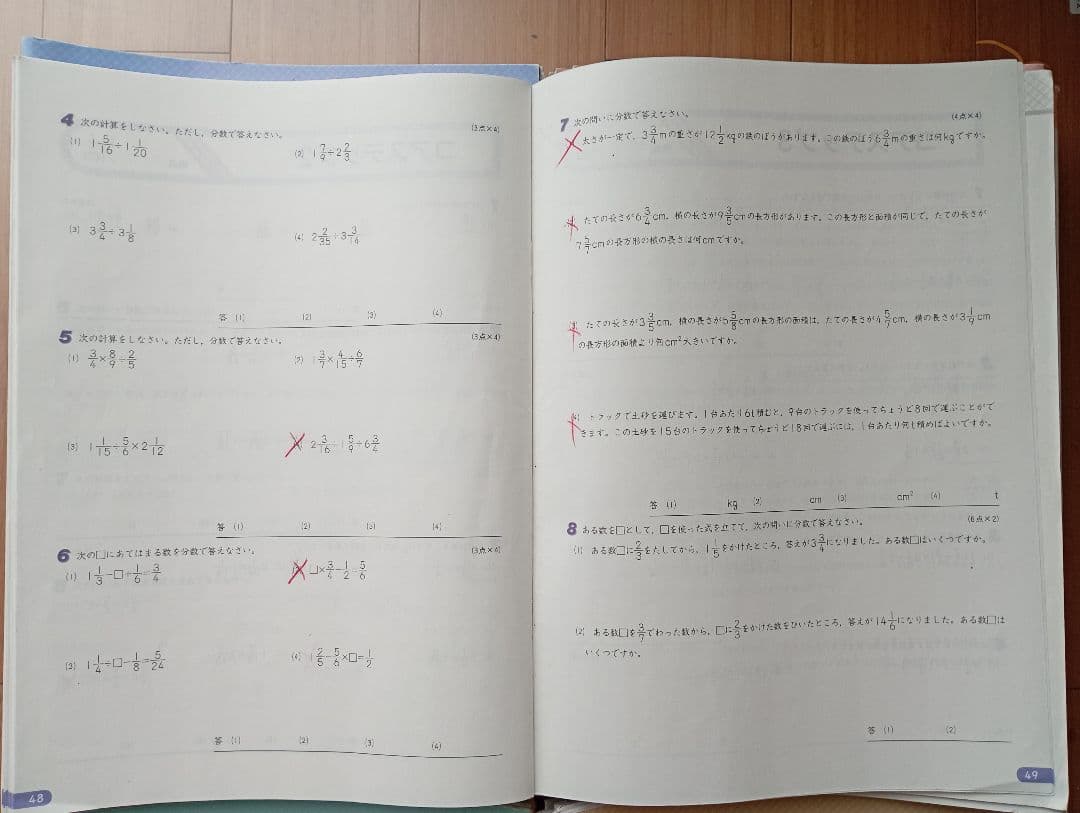 4 次の計算をしなさい。ただし，分数で答えなさい。 (3点×4)
(1) 1 5/16÷1 1/20 (2) 1 7/9÷2 2/3
(3) 3 3/4÷3 1/8 (4) 2 2/35÷3 3/14
答 (1) (2) (3) (4)
5 次の計算をしなさい。ただし，分数で答えなさい。 (3点×4)
(1) 3/4×8/9÷2/5 (2) 1 3/7×4/15÷6/7
(3) 1 1/15÷5/6×2 1/12 2 3/16÷1 5/9÷6 3/4
答 (1) (2) (3) (4)
6 次の□にあてはまる数を分数で答えなさい。 (3点×4)
(1) 1 1/3−□÷1/6=3/4 □×3/4−1/2=5/6
(3) 1 1/4÷□−1/8=5/24 (4) 1 2/5−5/6×□=1/2
答 (1) (2) (3) (4)
48
7 次の問いに分数で答えなさい。 (4点×4)
太さが一定で，3 3/4mの重さが12 1/2kgの鉄のぼうがあります。この鉄のぼう6 3/4mの重さは何kgですか。
たての長さが6 3/4cm，横の長さが9 3/5cmの長方形があります。この長方形と面積が同じで，たての長さが
cmの長方形の横の長さは何cmですか。
たての長さが3 3/5cm，横の長さが5 5/8cmの長方形の面積は，たての長さが4 5/7cm，横の長さが3 1/9cm
の長方形の面積より何cm²大きいですか。
トラックで土砂を運びます。1台あたり6t積むと，9台のトラックを使ってちょうど8回で運ぶことがで
きます。この土砂を15台のトラックを使ってちょうど18回で運ぶには，1台あたり何t積めばよいですか。
答 (1) kg (2) cm (3) cm² (4) t
8 ある数を□として，□を使った式を立てて，次の問いに分数で答えなさい。 (6点×2)
(1) ある数□に2/3をたしてから，1 1/5をかけたところ，答えが3 3/4になりました。ある数□はいくつですか。
(2) ある数□を3/7でわった数から，□に2/3をかけた数をひいたところ，答えが14 1/6になりました。ある数□は
いくつですか。
答 (1) (2)
49